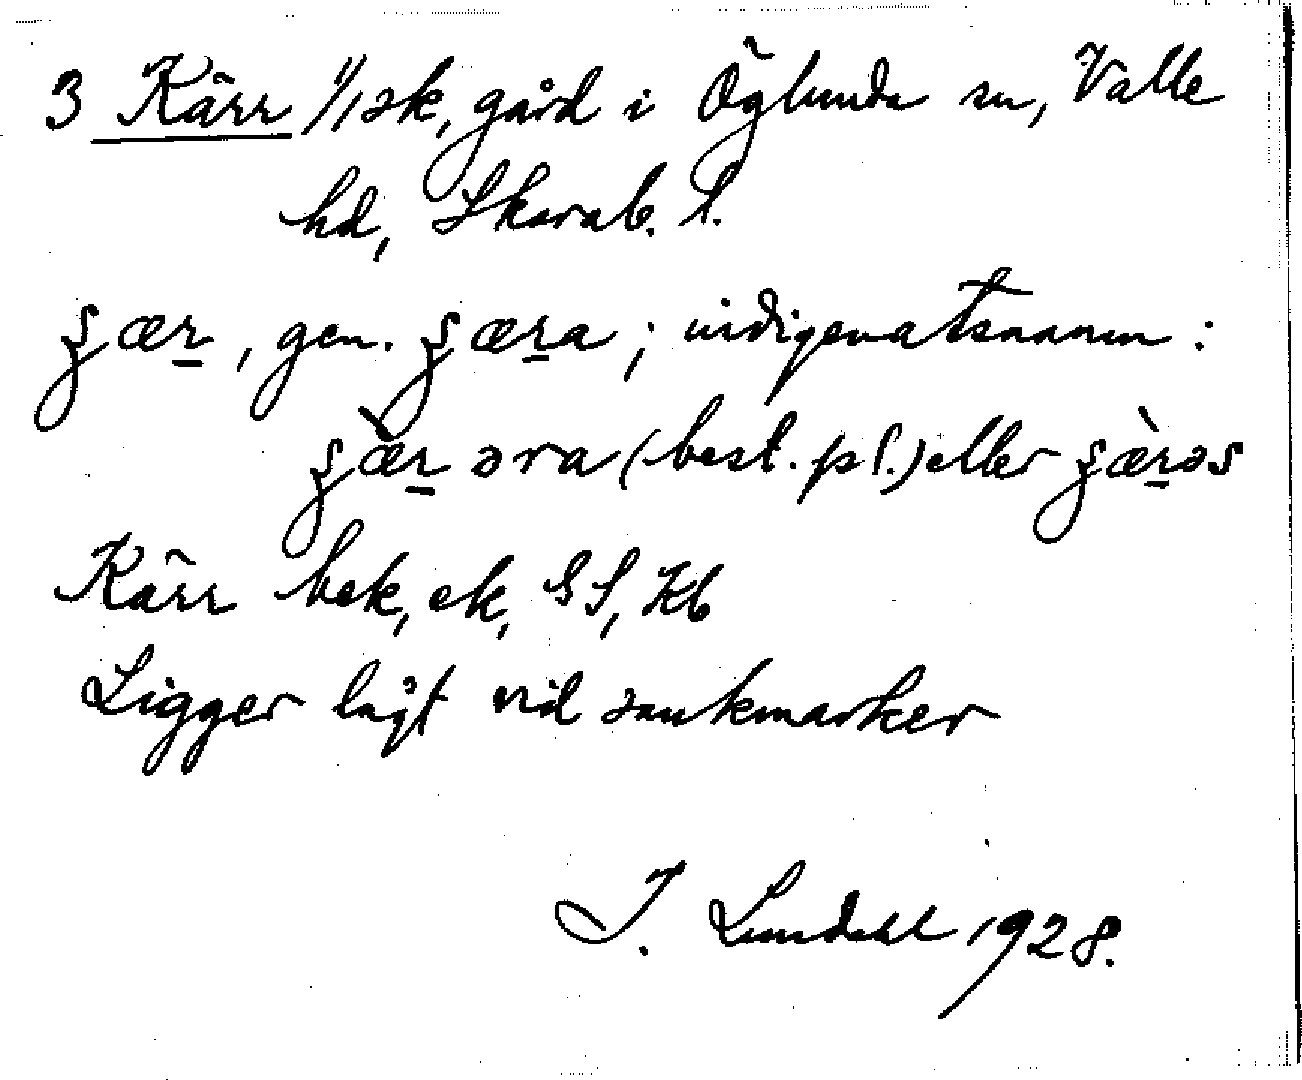 3 Kärr 1/1 sk, gård i Öglunda sn, Valle
hd, Skarab. l.
ʂær, gen. ʂæra; indigenatsnamn:
ʂæ̀rəra (best. pl.) eller ʂæ̀rəs
Kärr bek, ek, GS, Kb
Ligger lågt vid sankmarker
I. Lundahl 1928.